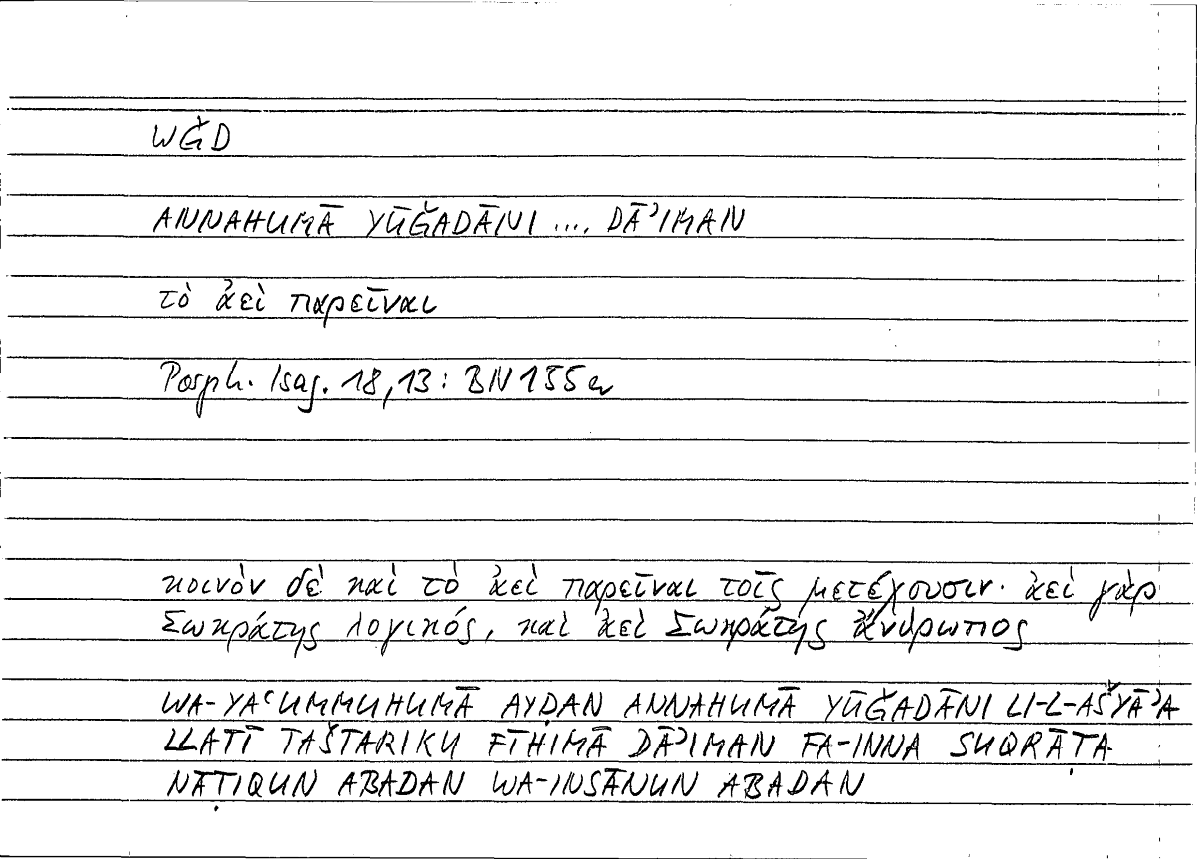 WǦD
ANNAHUMĀ YŪǦADĀNI .... DĀʾIMAN
τὸ ἀεὶ παρεῖναι
Porph. Isag. 18,13 : BN 155a
κοινὸν δὲ καὶ τὸ ἀεὶ παρεῖναι τοῖς μετέχουσιν· ἀεὶ γὰρ
Σωκράτης λογικός, καὶ ἀεὶ Σωκράτης ἄνθρωπος
WA-YAʿUMMUHUMĀ AYḌAN ANNAHUMĀ YŪǦADĀNI LI-L-AŠYĀʾA
LLATĪ TAŠTARIKU FĪHIMĀ DĀʾIMAN FA-INNA SUQRĀṬA
NĀṬIQUN ABADAN WA-INSĀNUN ABADAN